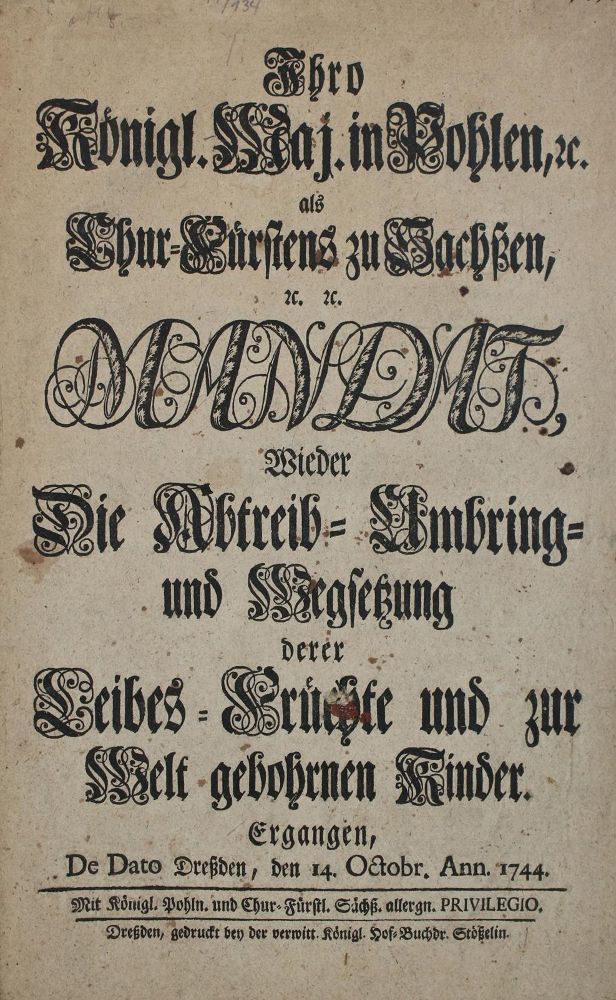 /134
Ihro
Königl. Maj. in Pohlen, ꝛc.
als
Chur-Fürstens zu Sachßen,
ꝛc. ꝛc.
MANDAT,
Wieder
Die Abtreib- Umbring-
und Wegsetzung
derer
Leibes-Früchte und zur
Welt gebohrnen Kinder.
Ergangen,
De Dato Dreßden, den 14. Octobr. Ann. 1744.
Mit Königl. Pohln. und Chur-Fürstl. Sächß. allergn. PRIVILEGIO.
Dreßden, gedruckt bey der verwitt. Königl. Hof-Buchdr. Stößelin.